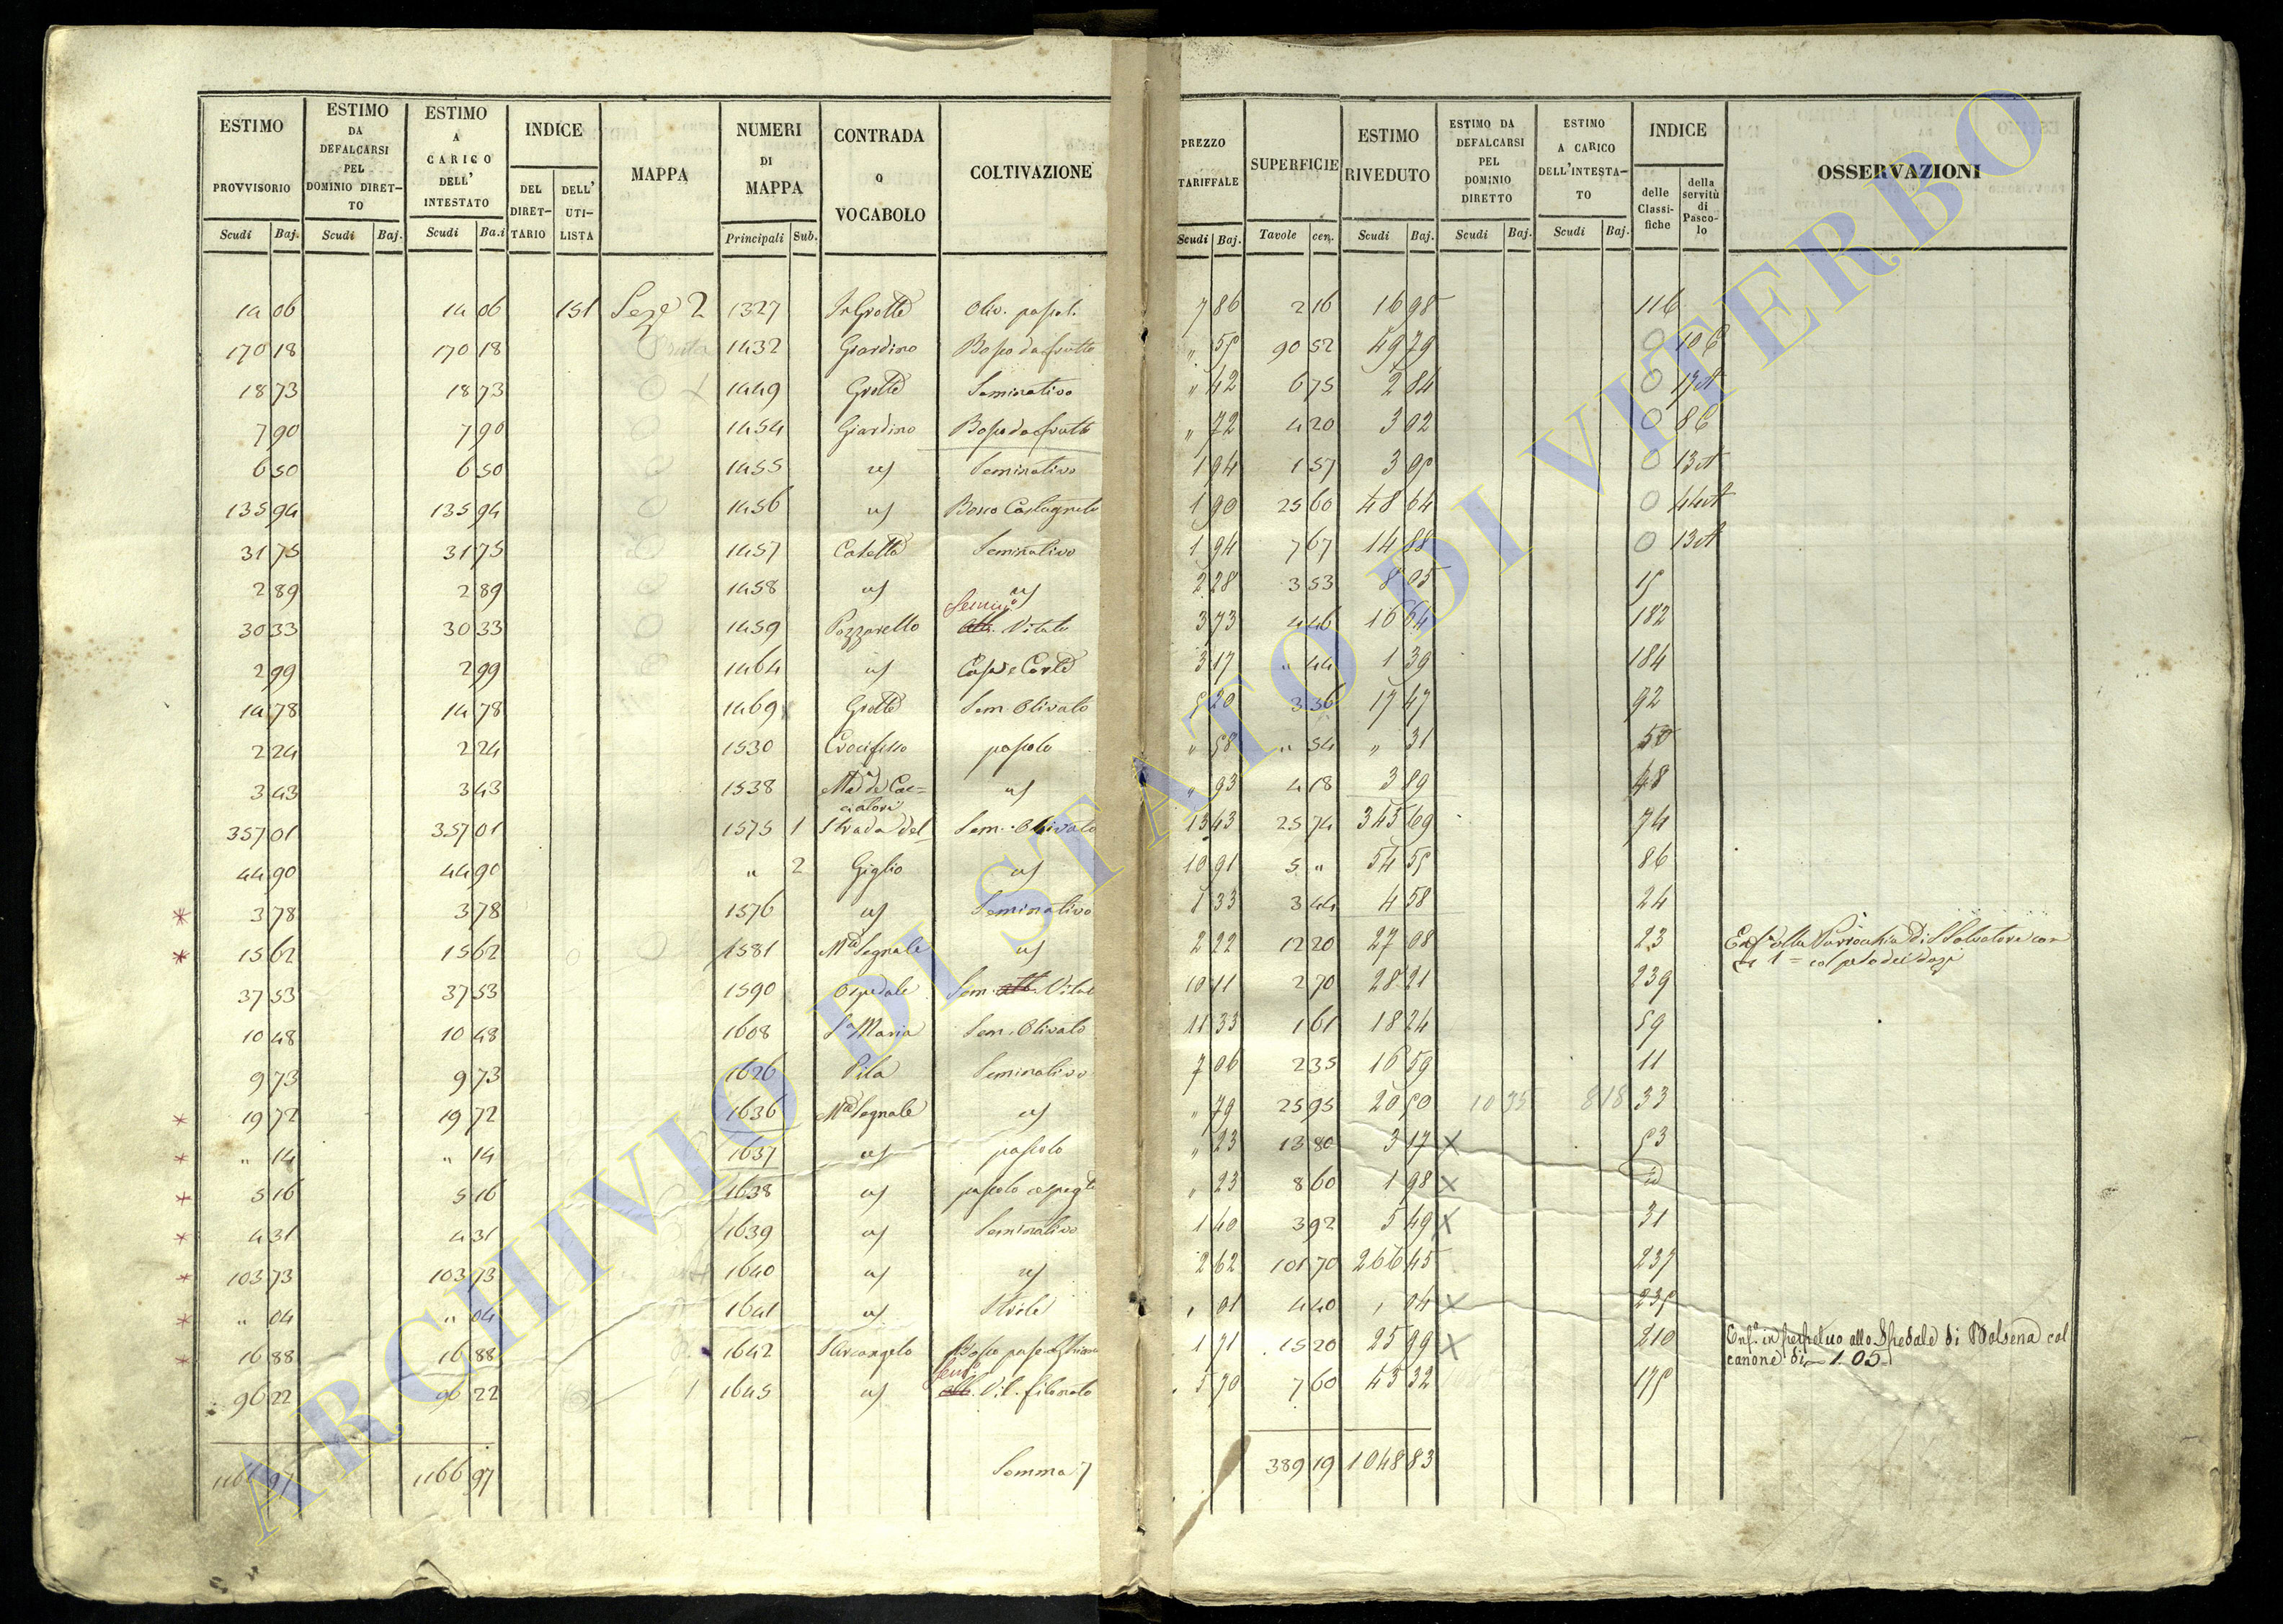 ESTIMO PROVVISORIO | ESTIMO DA DEFALCARSI PEL DOMINIO DIRET-TO | ESTIMO A CARICO DELL' INTESTATO | INDICE | MAPPA | NUMERI DI MAPPA | CONTRADA O VOCABOLO | COLTIVAZIONE | PREZZO TARIFFALE | SUPERFICIE | ESTIMO RIVEDUTO | ESTIMO DA DEFALCARSI PEL DOMINIO DIRETTO | ESTIMO A CARICO DELL'INTESTA-TO | INDICE | OSSERVAZIONI
DEL DIRET-TARIO | DELL' UTI-LISTA | delle Classi-fiche | della servitù di Pasco-lo
Scudi | Baj. | Scudi | Baj. | Scudi | Ba.i | Principali | Sub. | Scudi | Baj. | Tavole | cen. | Scudi | Baj. | Scudi | Baj. | Scudi | Baj.
14 06 | 14 06 | 151 | Seze 2 | 1327 | Grotte | Oliv. pascol. | 7 86 | 2 16 | 16 98 | 116
170 18 | 170 18 | 1432 | Giardino | Bosco da frutto | " 55 | 90 52 | 49 79 | 0 | 10 C
18 73 | 18 73 | 1449 | Grotte | Seminativo | " 42 | 6 75 | 2 84 | 0 | 13 A
7 90 | 7 90 | 1454 | Giardino | Bosco da frutto | " 72 | 4 20 | 3 02 | 0 | 8 C
6 50 | 6 50 | 1455 | " | Seminativo | 1 94 | 1 57 | 3 05 | 0 | 13 A
135 94 | 135 94 | 1456 | " | Bosco Castagneto | 1 90 | 25 60 | 48 64 | 0 | 44 A
31 75 | 31 75 | 1457 | Casetta | Seminativo | 1 94 | 7 67 | 14 88 | 0 | 13 A
2 89 | 2 89 | 1458 | " | " | 2 28 | 3 53 | 8 05 | 15
Semin°
30 33 | 30 33 | 1459 | Pozzarello | Vitato | 3 73 | 4 46 | 16 64 | 182
2 99 | 2 99 | 1464 | " | Casa e Corte | 3 17 | " 44 | 1 39 | 184
14 78 | 14 78 | 1469 | Grotte | Sem. Olivato | 5 20 | 3 36 | 17 47 | 92
2 24 | 2 24 | 1530 | Crocifisso | pascolo | " 58 | " 54 | " 31 | 50
3 43 | 3 43 | 1538 | Mad.a de Cac=ciatori | " | " 93 | 4 18 | 3 89 | 48
357 01 | 357 01 | 1575 | 1 | Strada del | Sem. Olivato | 13 43 | 25 74 | 345 69 | 74
44 90 | 44 90 | " | 2 | Giglio | " | 10 91 | 5 " | 54 55 | 86
* 3 78 | 3 78 | 1576 | " | Seminativo | 1 33 | 3 44 | 4 58 | 24
* 15 62 | 15 62 | 1581 | M.a Segnale | " | 2 22 | 12 20 | 27 08 | 23 | Enf.a alla Parrocchia di S Salvatore con
37 53 | 37 53 | 1590 | Ospedale | Sem. Vitat | 10 11 | 2 70 | 28 21 | 239
10 48 | 10 48 | 1608 | S.a Maria | Sem. Olivato | 11 33 | 1 61 | 18 24 | 59
9 73 | 9 73 | 1626 | Pila | Seminativo | 7 06 | 2 35 | 16 59 | 11
* 19 72 | 19 72 | 1636 | M.a Segnale | " | " 79 | 25 95 | 20 50 | 10 35 | 8 18 | 33
* " 14 | " 14 | 1637 | " | pascolo | " 23 | 13 80 | 3 17 | X | 53
* 5 16 | 5 16 | 1638 | " | pascolo cespugl | " 23 | 8 60 | 1 98 | X | id
* 4 31 | 4 31 | 1639 | " | Seminativo | 1 40 | 3 92 | 5 49 | X | 31
* 103 73 | 103 73 | 1640 | " | " | 2 62 | 101 70 | 266 45 | 237
* " 04 | " 04 | 1641 | " | Sterile | " 01 | 4 40 | " 04 | X | 235
* 16 88 | 16 88 | 1642 | S Arcangelo | Bosco | 1 71 | 15 20 | 25 99 | X | 210 | Enf.a in perpetuo allo Spedale di Bolsena col canone di 1.05
96 22 | 96 22 | 1645 | " | Semin° Vit. filonato | 5 70 | 7 60 | 43 32 | 175
1166 97 | 1166 97 | Somma | 389 19 | 1048 83
ARCHIVIO DI STATO DI VITERBO